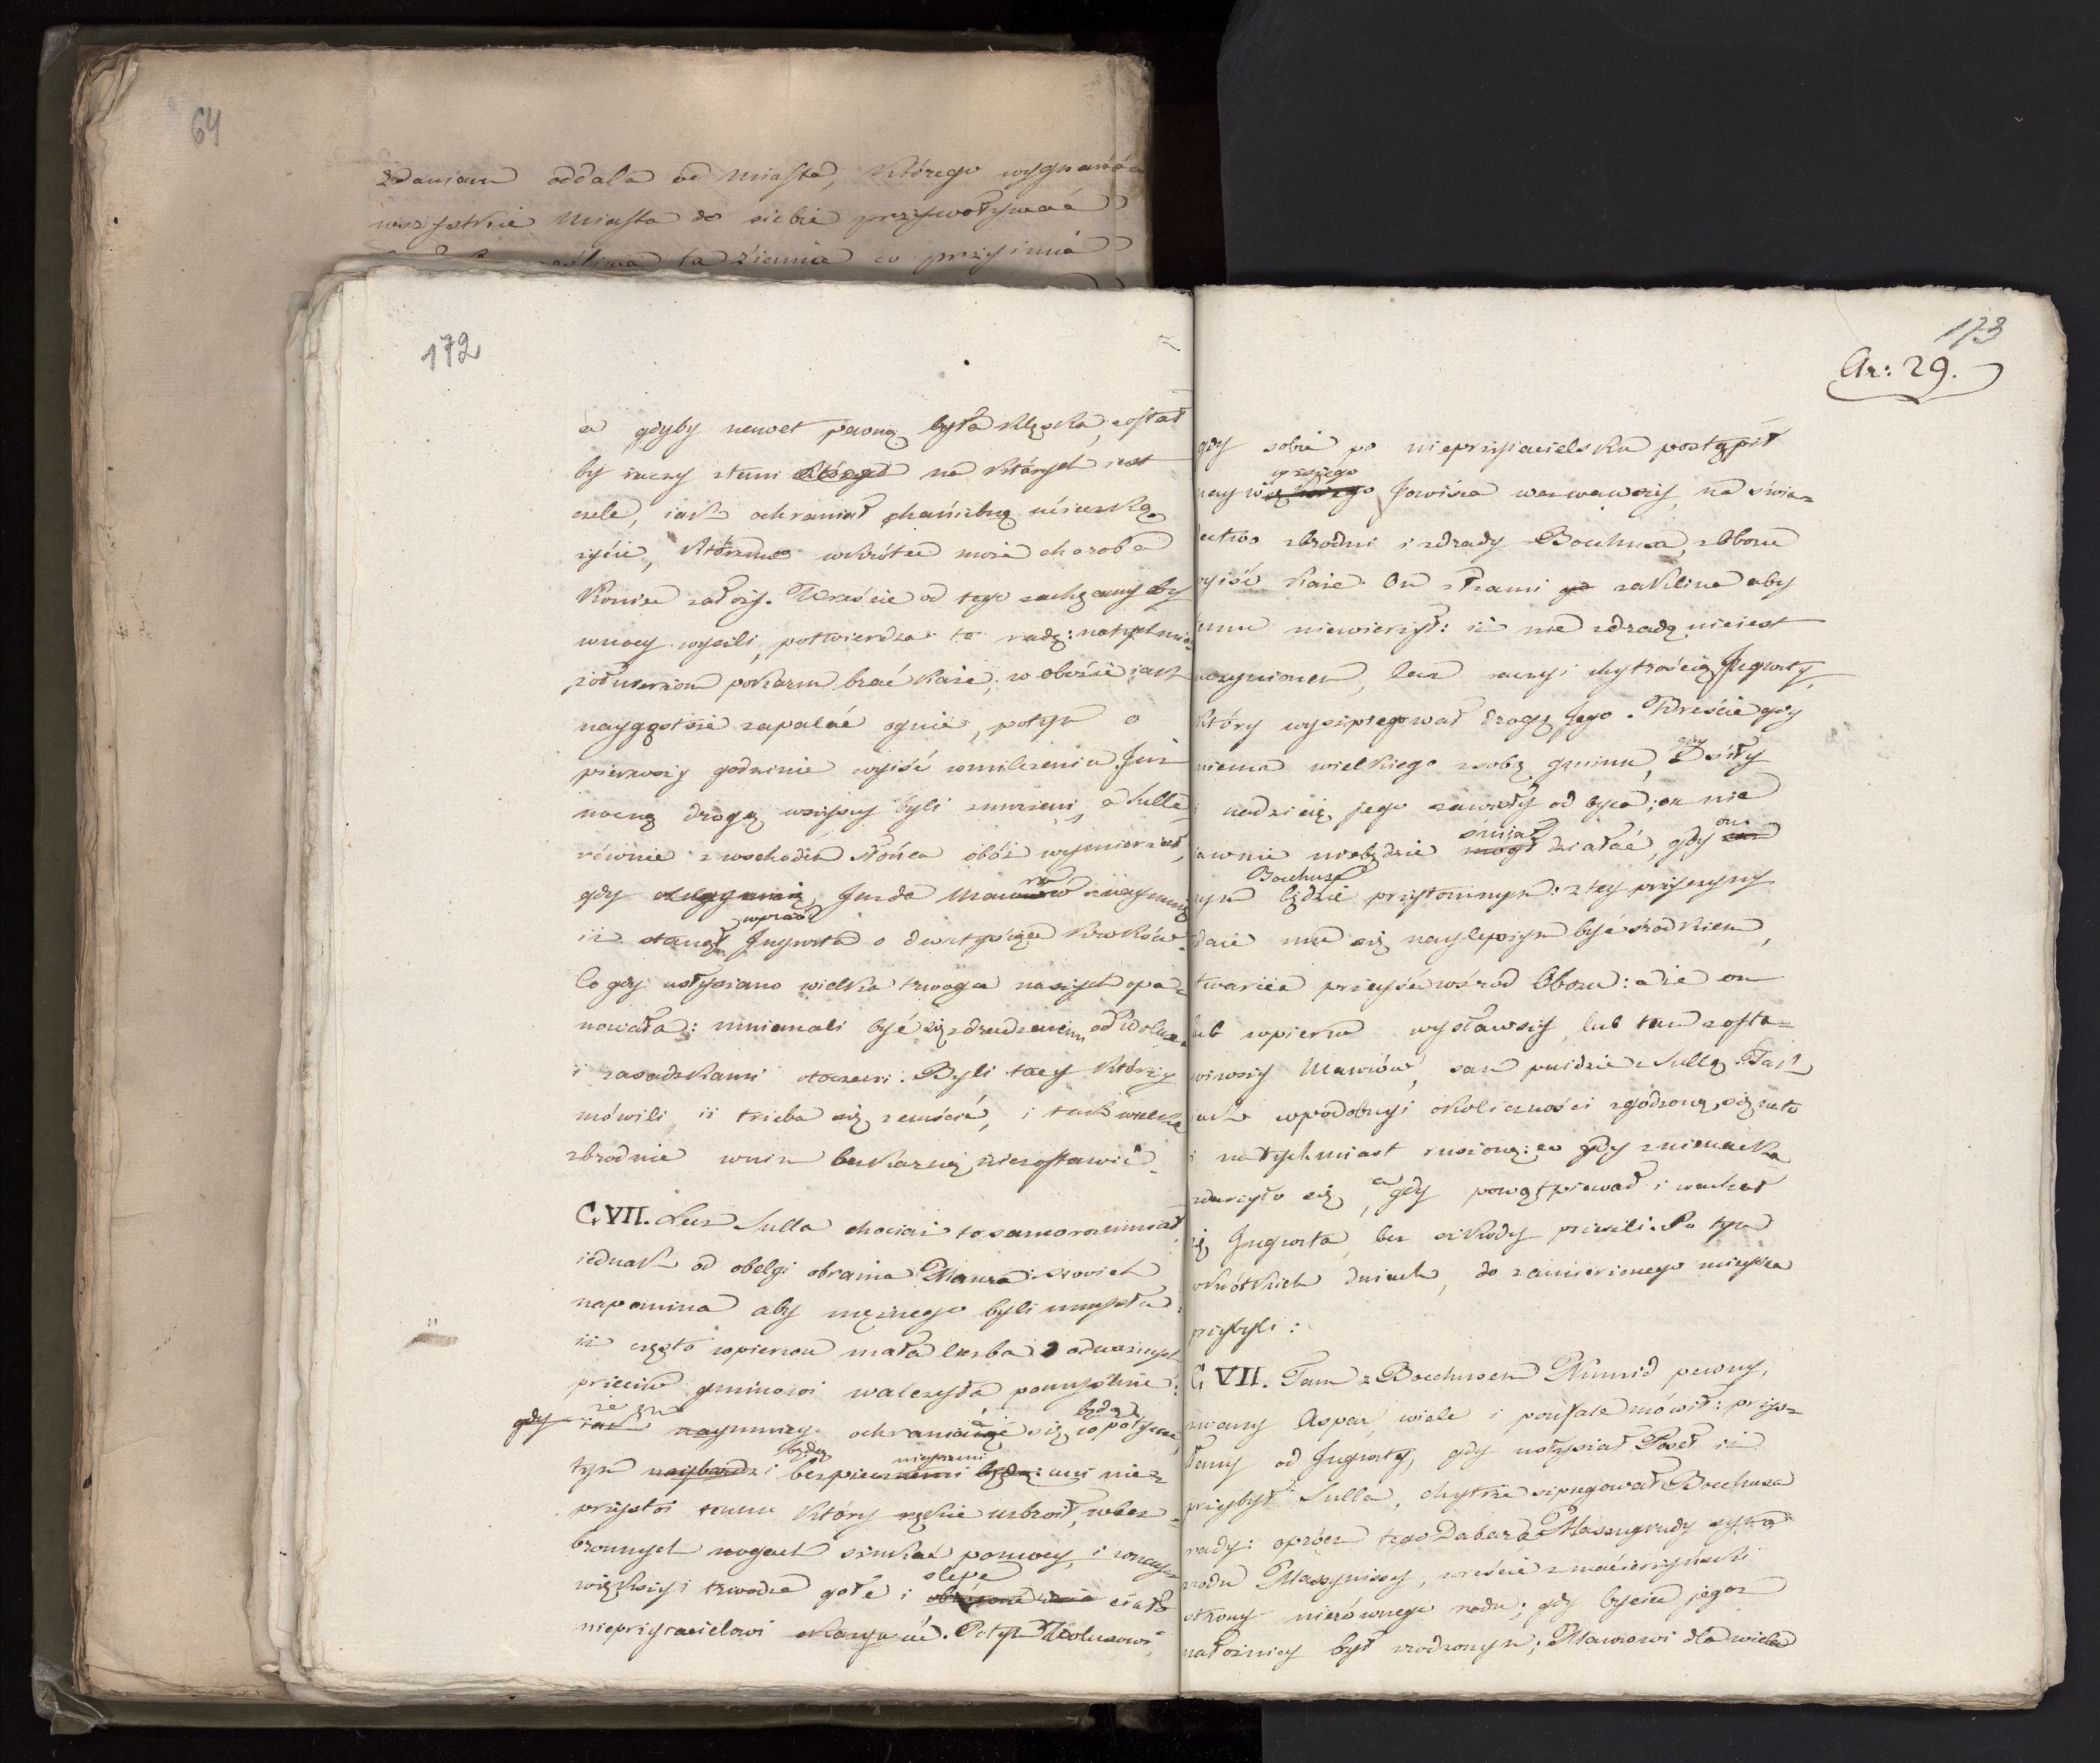 64
zdaniem oddala od Miasta, którego wygnańców
wszystkie Miasta do siebie przywoływać
ta ziemia co przyimie
172
a gdyby nawet pewną była klęska, został
by raczey ztemi których na których iest
czele, iak ochraniał zhańbną ucieczką
życie, któremu wkrótce może choroba
koniec założy. Wreście od tego zachęcony aby
wnocy wyszli, potwierdza tę radę: natychmiast
żołnierzom pokarm brać każe, w obozie iak
naygęstsze zapalać ognie, potym o
pierwszey godzinie wyiść wmilczeniu. Już
nocną drogą wszyscy byli znużeni, a Sulla
równie zwschodem słońca obóz wymierzał,
gdy Jazda Maurów
wprzód
iż stanął Jugurta o dwatysiące kroków.
Co gdy usłyszano wielka trwoga naszych opa-
nowała: mniemali być się zdradzonemi od Woluxa
i zasadzkami otoczeni. Byli tacy którzy
mówili iż trzeba się zemścić, i tak wielką
zbrodnię wnim bezkarną niezostawić.
C. VII. Lecz Sulla chociaż tosamo rozumiał,
iednak od obelgi obrania Maura: swoich
napomina aby mężnego byli umysłu:
iż często wpierwu mała liczba odważnych
przeciw gminowi walczyła pomyślnie:
gdy iak naymniey ochraniać się będą w potyczce,
będą
tym naybardzi bezpiecznemi będą: ani nie-
przystoi temu który ręke uzbroił, wbez-
bronnych nogach szukać pomocy, i wnay-
ślepe
większey trwodze gołe i ciało
nieprzyiacielowi okazywać. Potym Woluxowi,
173
Ar: 29.
gdy sobie po nieprzyiacielsku postąpił
wyższego
nayw Jowisza wezwawszy, na świa-
dectwo zbrodni i zdrady Bocchusa, zobozu
wyiść każe. On złzami go zaklina aby
temu niewierzył: iż nie zdradą nieiest
uczyniono, lecz raczy chytrością Jugurty,
który wyszpiegował drogę Jego. Wreście gdy
niema wielkiego zsobą gminu, gdy siły
i nadzieię jego zawisły od oyca; on nie
śmiał
iawnie niebędzie mógł działać, gdy on
Bocchusa
syn będzie przytomnym: z tey przyczyny
zdaie mu się naylepszym być środkiem,
twarcie przeyść wśrzód Obozu: a że on
lub wpierw wysławszy, lub tam zosta-
wiwszy Maurów, sam puidzie z Sullą. Tak
iak wpodobnyi okoliczności zgodzono się nato
i natychmiast ruszono: co gdy znienacka
zdarzyło się, a gdy powątpiewał i wahał
się Jugurta, bez szkody przeszli. Po tym
wkrótkich dniach, do zamierzonego mieysca
przybyli:
C. VII. Tam z Bocchusem Numid pewny,
zwany Aspar, wiele i poufale mówił: przys-
łany od Jugurty, gdy usłyszał Poseł iż
przybył Sulla, chytrze szpiegował Bocchusa
rady: oprócz tego Dabar, Massugrady syn
zrodu Massynissy, zreście z macierzyński
strony nierównego rodu; gdy oyciec jego z
nałożnicy był zrodzonym; Maurowi dla wielu